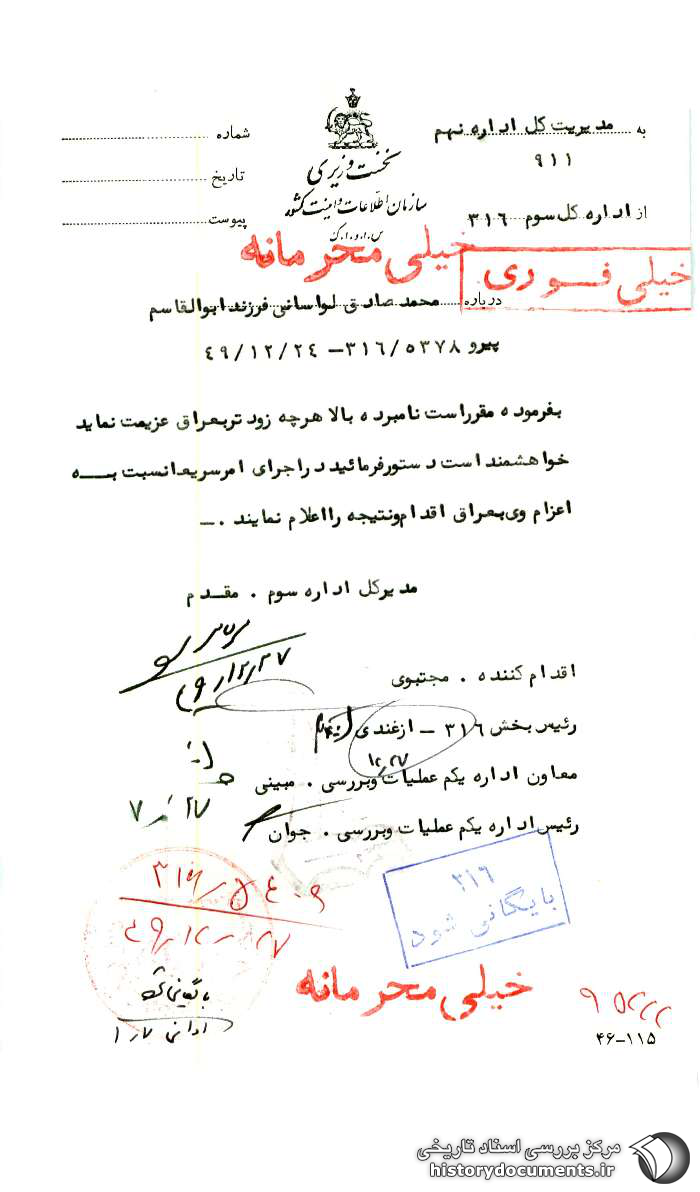 به مدیریت کل اداره نهم
۹۱۱
از اداره کل سوم ۳۱۶
نخست وزیری
سازمان اطلاعات و امنیت کشور
س.ا.و.ا.ک
شماره
تاریخ
پیوست
خیلی محرمانه
خیلی فوری
درباره محمد صادق لواسانی فرزند ابوالقاسم
پیرو ۳۱۶/۵۳۷۸ – ۴۹/۱۲/۲۴
بفرموده مقرر است نامبرده بالا هرچه زودتر بعراق عزیمت نماید
خواهشمند است دستور فرمائید در اجرای امر سریعا نسبت بــه
اعزام وی بعراق اقدام و نتیجه را اعلام نمایند . ــ
مدیر کل اداره سوم . مقدم
۴۹/۱۲/۲۷
اقدام کننده . مجتبوی
رئیس بخش ۳۱۶ – ازغندی
۱۲/۲۷
معاون اداره یکم عملیات و بررسی . مبینی
رئیس اداره یکم عملیات و بررسی . جوان
۳۱۶/۵۴۰۹
۴۹/۱۲/۲۷
۳۱۶
بایگانی شود
خیلی محرمانه
۴۶-۱۱۵
مرکز بررسی اسناد تاریخی
historydocuments.ir